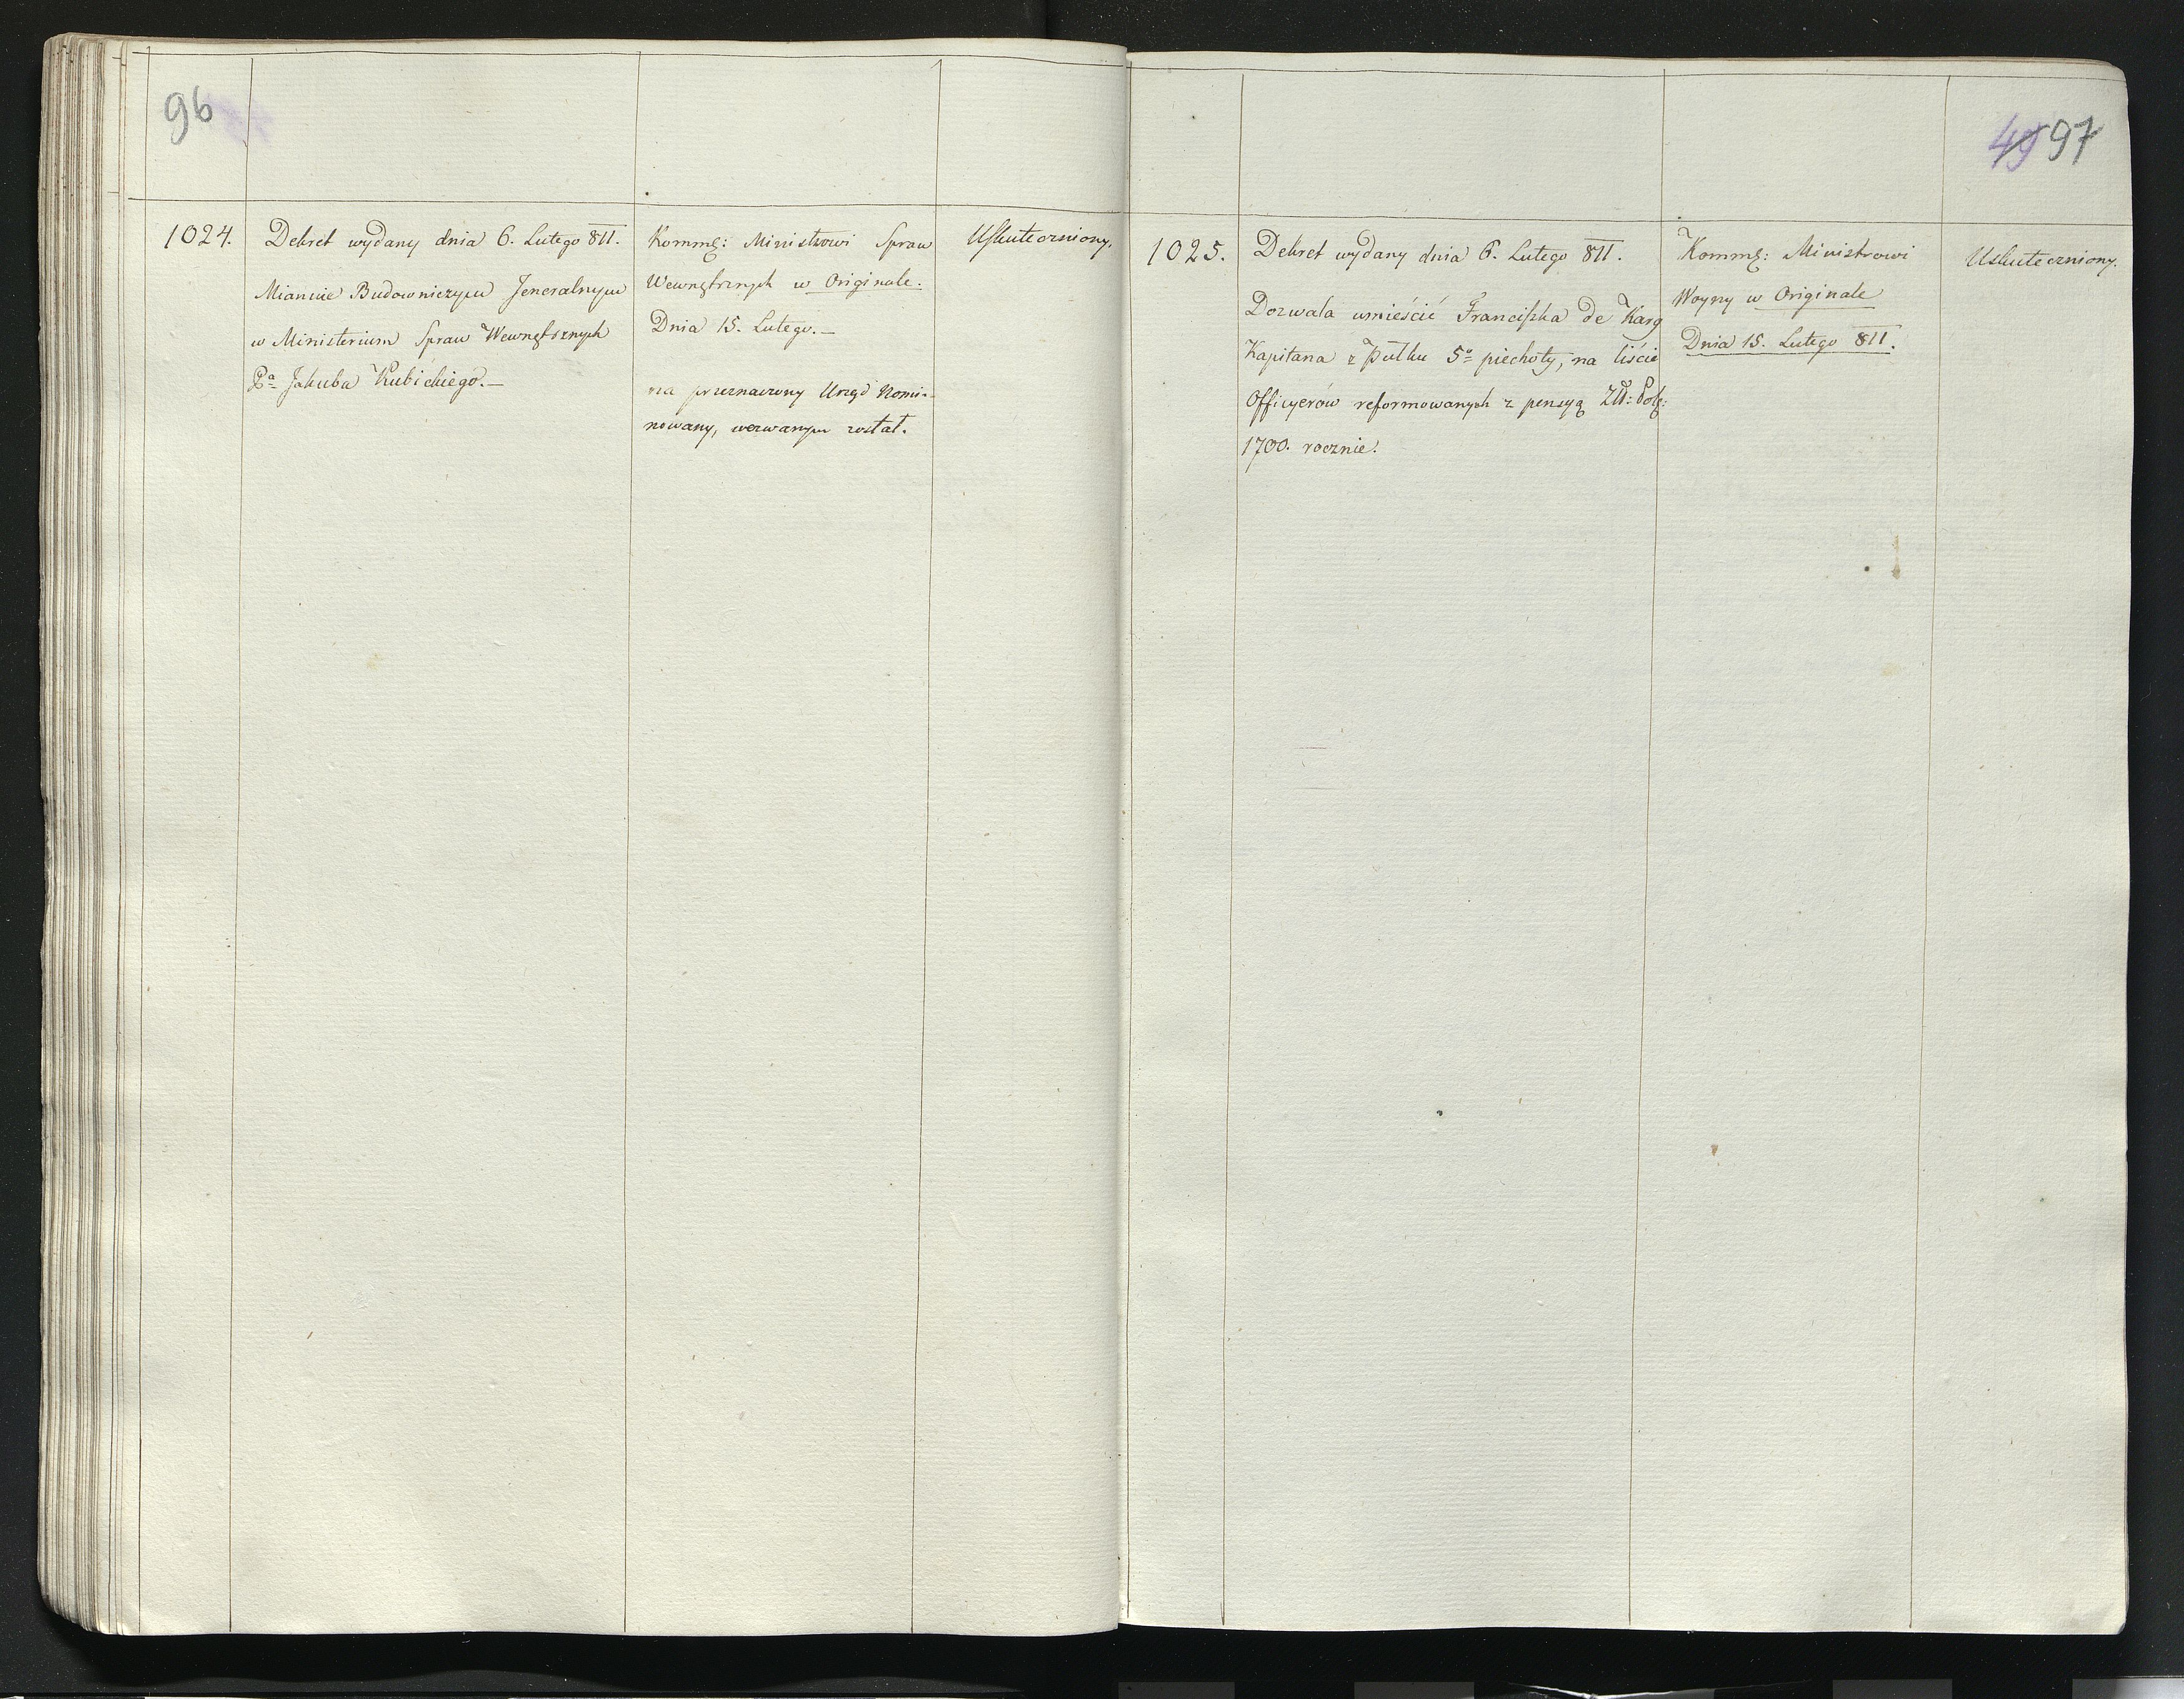 96
1024.
Dekret wydany dnia 6. Lutego 811.
Mianuie Budowniczym Jeneralnym
w Ministerium Spraw Wewnętrznych
Pa Jakuba Kubickiego.—
Kommę: Ministrowi Spraw
Wewnętrznych w Originale.
Dnia 15. Lutego.—
na przeznaczony Urząd Nomi-
nowany, wezwanym został.
Uskuteczniony.
49 97
1025.
Dekret wydany dnia 6. Lutego 811.
Dozwala umieścić Franciszka de Karg
Kapitana z Pułku 5o piechoty, na liście
Officyerów reformowanych z pensyą Złł: Polę:
1700. rocznie.
Kommę: Ministrowi
Woyny w Originale
Dnia 15. Lutego 811.
Uskuteczniony.